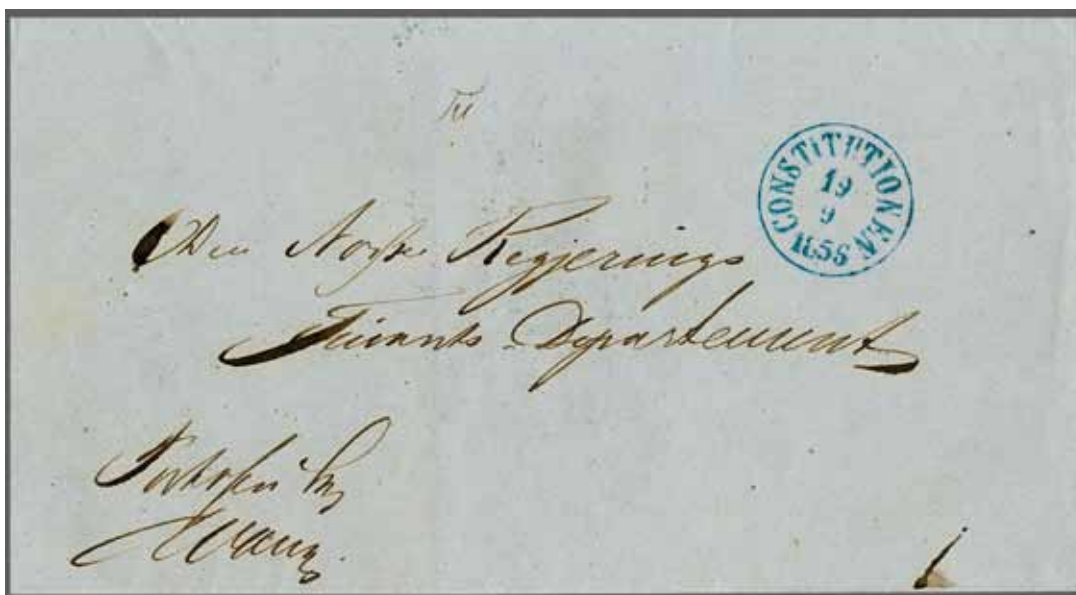 Til
CONSTITUTIONEN
19
9
1856
Den Norske Regjerings
Finants-Departement
Portofri